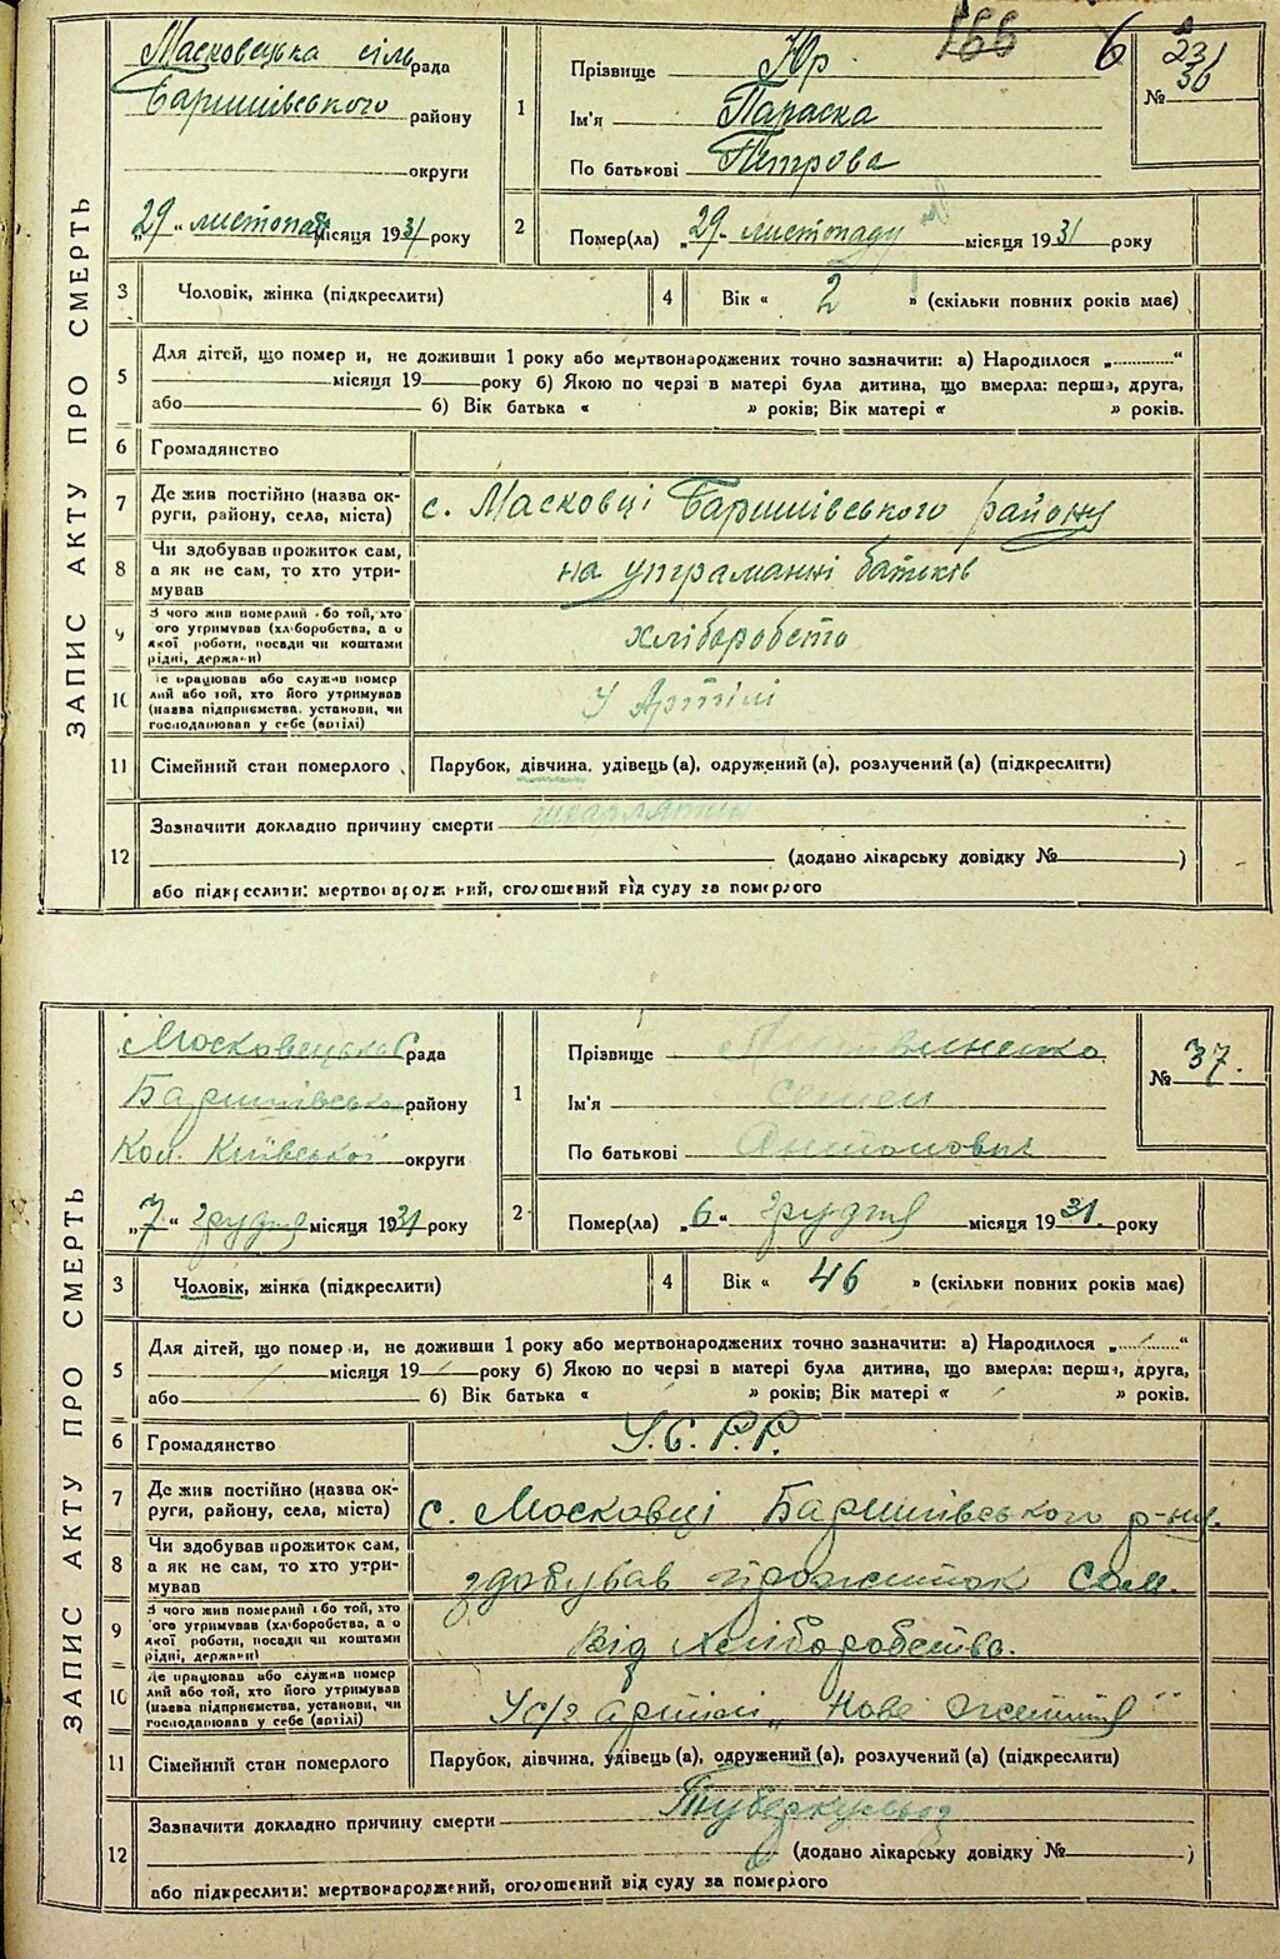 166 6
ЗАПИС АКТУ ПРО СМЕРТЬ
Масковецька сільрада
Баришівського району
округи
„29“ листопад місяця 1931 року
1
Прізвище Юр
Ім'я Параска
По батькові Петрова
№ 36
231
2
Помер(ла) „29“ листопаду місяця 1931 року
3 Чоловік, жінка (підкреслити)
4 Вік « 2 » (скільки повних років має)
5 Для дітей, що помер и, не доживши 1 року або мертвонароджених точно зазначити: а) Народилося „..........“
місяця 19 року б) Якою по черзі в матері була дитина, що вмерла: перша, друга,
або б) Вік батька « » років; Вік матері « » років.
6 Громадянство
7 Де жив постійно (назва ок-
руги, району, села, міста) с. Масковці Баришівського району
8 Чи здобував прожиток сам,
а як не сам, то хто утри-
мував на утраманні батьків
9 З чого жив померлий або той, хто
ого утримував (хліборобства, а о
якої роботи, посади чи коштами
рідні, держави) хліборобсто
10 е працював або служив помер
лий або той, хто його утримував
(назва підприємства, установи, чи
господарював у себе (артілі) У Артілі
11 Сімейний стан померлого Парубок, дівчина, удівець (а), одружений (а), розлучений (а) (підкреслити)
12 Зазначити докладно причину смерти шкарлятин
(додано лікарську довідку № )
або підкреслити: мертвонароджений, оголошений від суду за померлого
ЗАПИС АКТУ ПРО СМЕРТЬ
Московецької рада
Баришівська району
Кол. Київської округи
„7“ грудня місяця 1931 року
1
Прізвище
Ім'я Семен
По батькові Антонович
№ 37.
2
Помер(ла) „6“ грудня місяця 1931. року
3 Чоловік, жінка (підкреслити)
4 Вік « 46 » (скільки повних років має)
5 Для дітей, що помер и, не доживши 1 року або мертвонароджених точно зазначити: а) Народилося „..........“
місяця 19 року б) Якою по черзі в матері була дитина, що вмерла: перша, друга,
або б) Вік батька « » років; Вік матері « » років.
6 Громадянство У.С.Р.Р.
7 Де жив постійно (назва ок-
руги, району, села, міста) с. Московці Баришівського р-ну.
8 Чи здобував прожиток сам,
а як не сам, то хто утри-
мував здобував прожиток сам.
9 З чого жив померлий або той, хто
ого утримував (хліборобства, а о
якої роботи, посади чи коштами
рідні, держави) Від хліборобства.
10 Де працював або служив помер
лий або той, хто його утримував
(назва підприємства, установи, чи
господарював у себе (артілі) У с/г артілі „Нове життя"
11 Сімейний стан померлого Парубок, дівчина, удівець (а), одружений (а), розлучений (а) (підкреслити)
12 Зазначити докладно причину смерти Туберкульоз
(додано лікарську довідку № )
або підкреслити: мертвонароджений, оголошений від суду за померлого